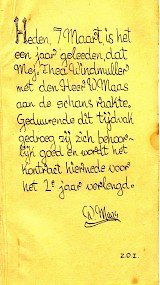 Heden, 7 Maart, is het
een jaar geleeden dat
Mej. Thea Windmuller
met den Heer W Maas
aan de schans raakte,
Gedurende dit tijdvak
gedroeg zij zich behoor-
lijk goed en wordt het
kontrakt hiernede voor
het 2e jaar verlengd.
W Maas
Z.O.Z.